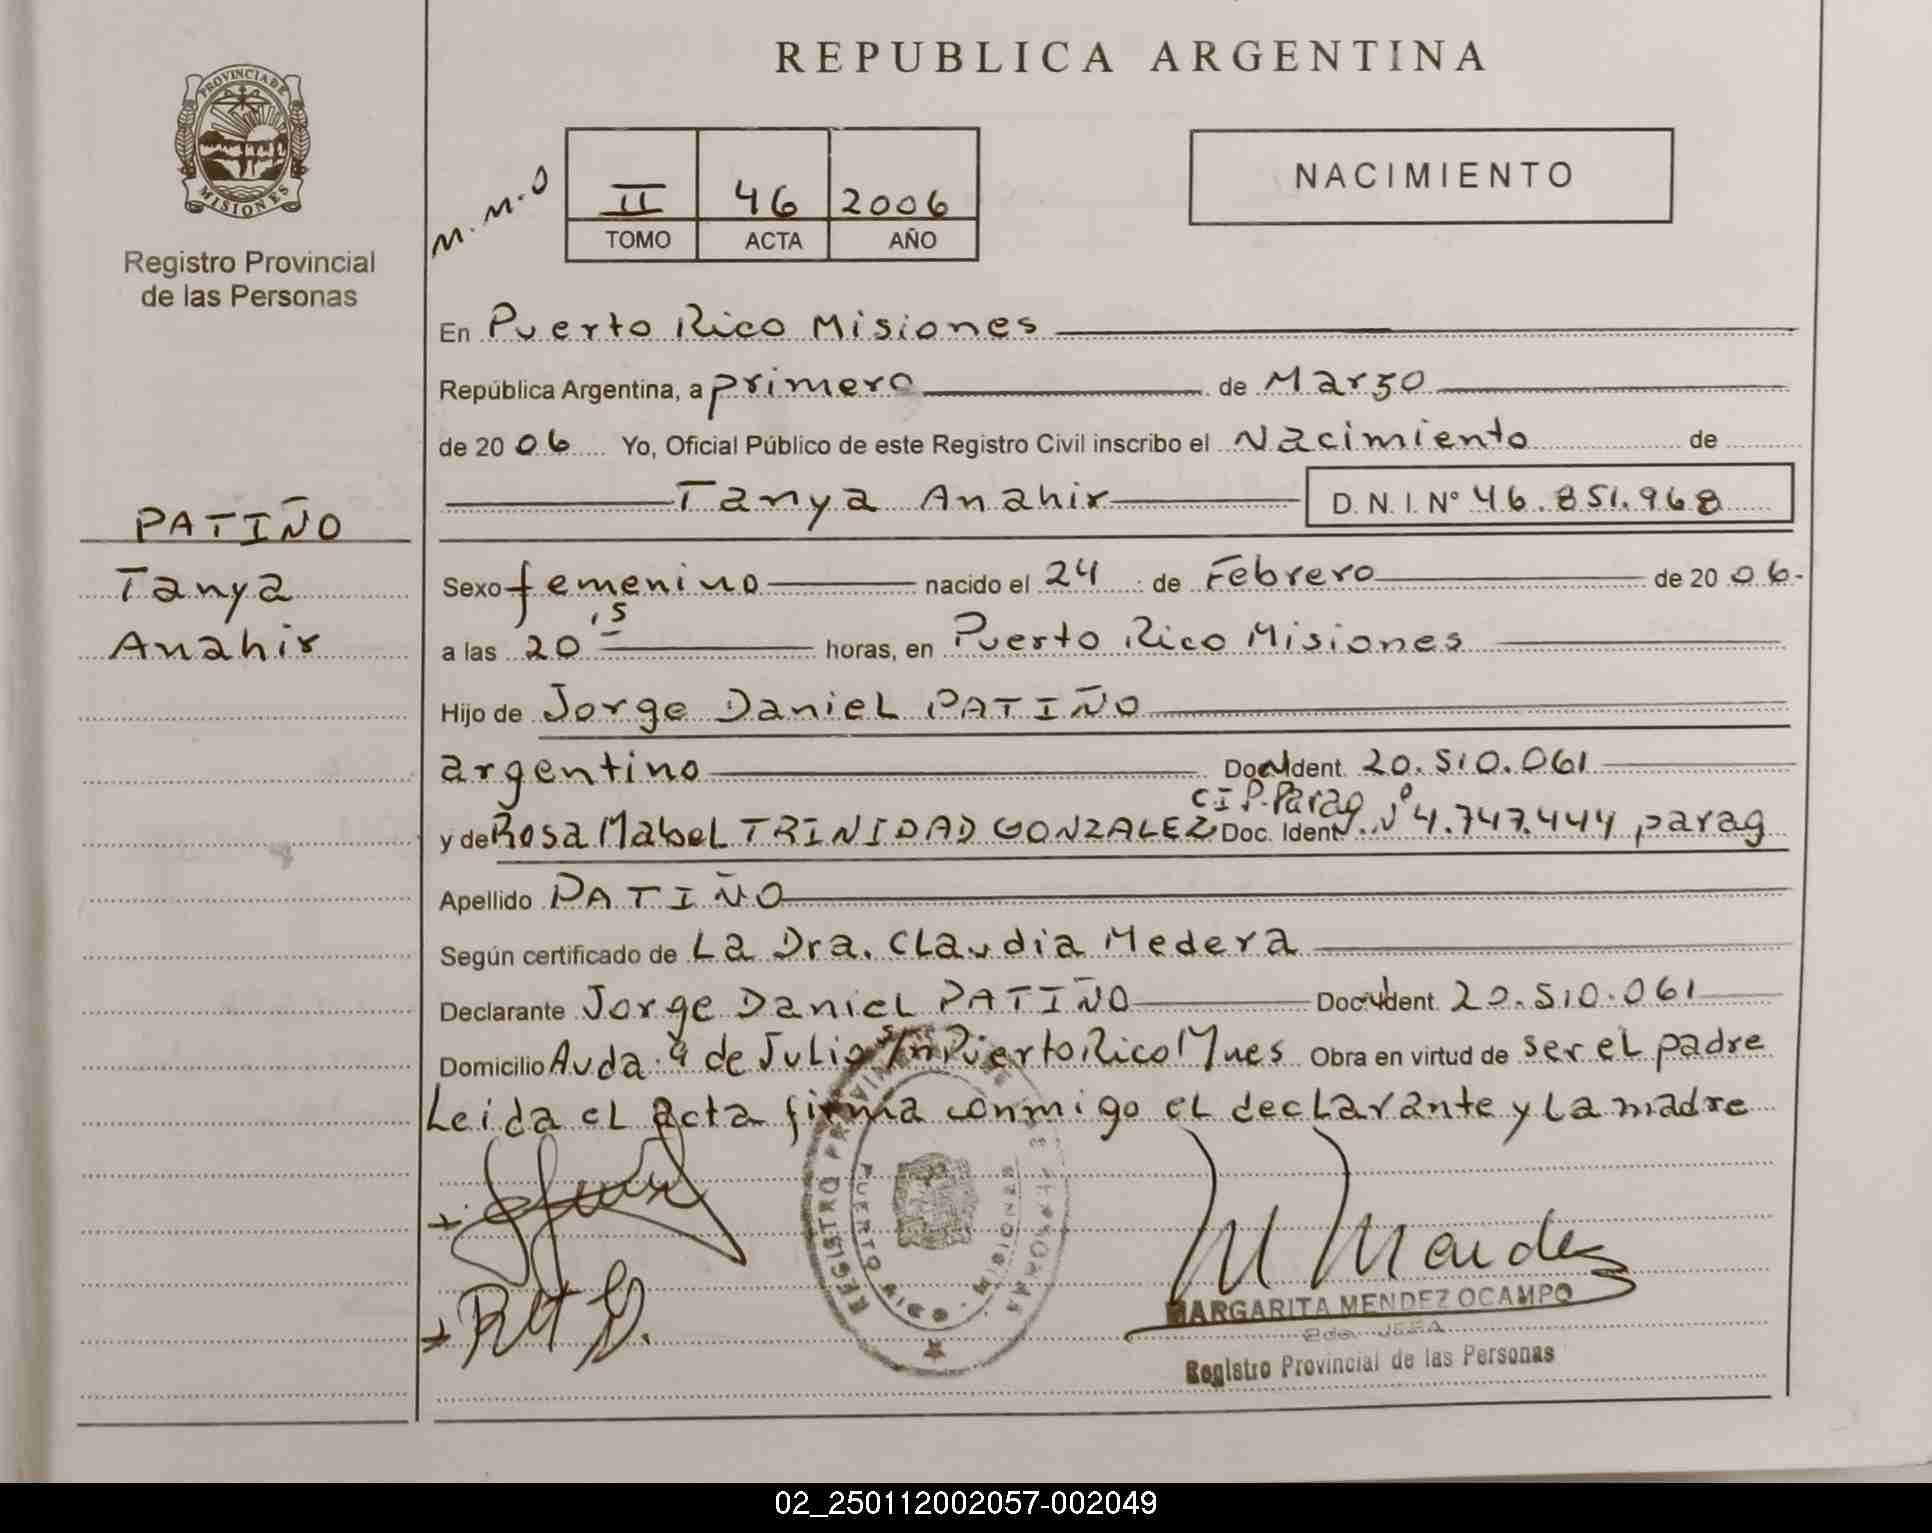 REPUBLICA ARGENTINA
PROVINCIA DE
MISIONES
Registro Provincial
de las Personas
M.M.O
II 46 2006
TOMO ACTA AÑO
NACIMIENTO
En Puerto Rico Misiones
República Argentina, a primero de Marzo
de 20 06 Yo, Oficial Público de este Registro Civil inscribo el Nacimiento de
Tanya Anahir D. N. I. N° 46.851.968
PATIÑO
Tanya
Anahir
Sexo femenino nacido el 24 de Febrero de 20 06.
a las 20 15 horas, en Puerto Rico Misiones
Hijo de Jorge Daniel PATIÑO
argentino Doc. Ident. 20.510.061
y de Rosa Mabel TRINIDAD GONZALEZ Doc. Ident. C I P. Parag N° 4.747.444, parag
Apellido PATIÑO
Según certificado de La Dra. Claudia Medera
Declarante Jorge Daniel PATIÑO Doc. Ident. 20.510.061
Domicilio Avda. 9 de Julio s/n Puerto Rico Mnes Obra en virtud de ser el padre
Leida el acta firma conmigo el declarante y la madre
REGISTRO PROVINCIAL DE LAS PERSONAS
PUERTO RICO - MISIONES
M Mendez
MARGARITA MENDEZ OCAMPO
JEFA
Registro Provincial de las Personas
02_250112002057-002049